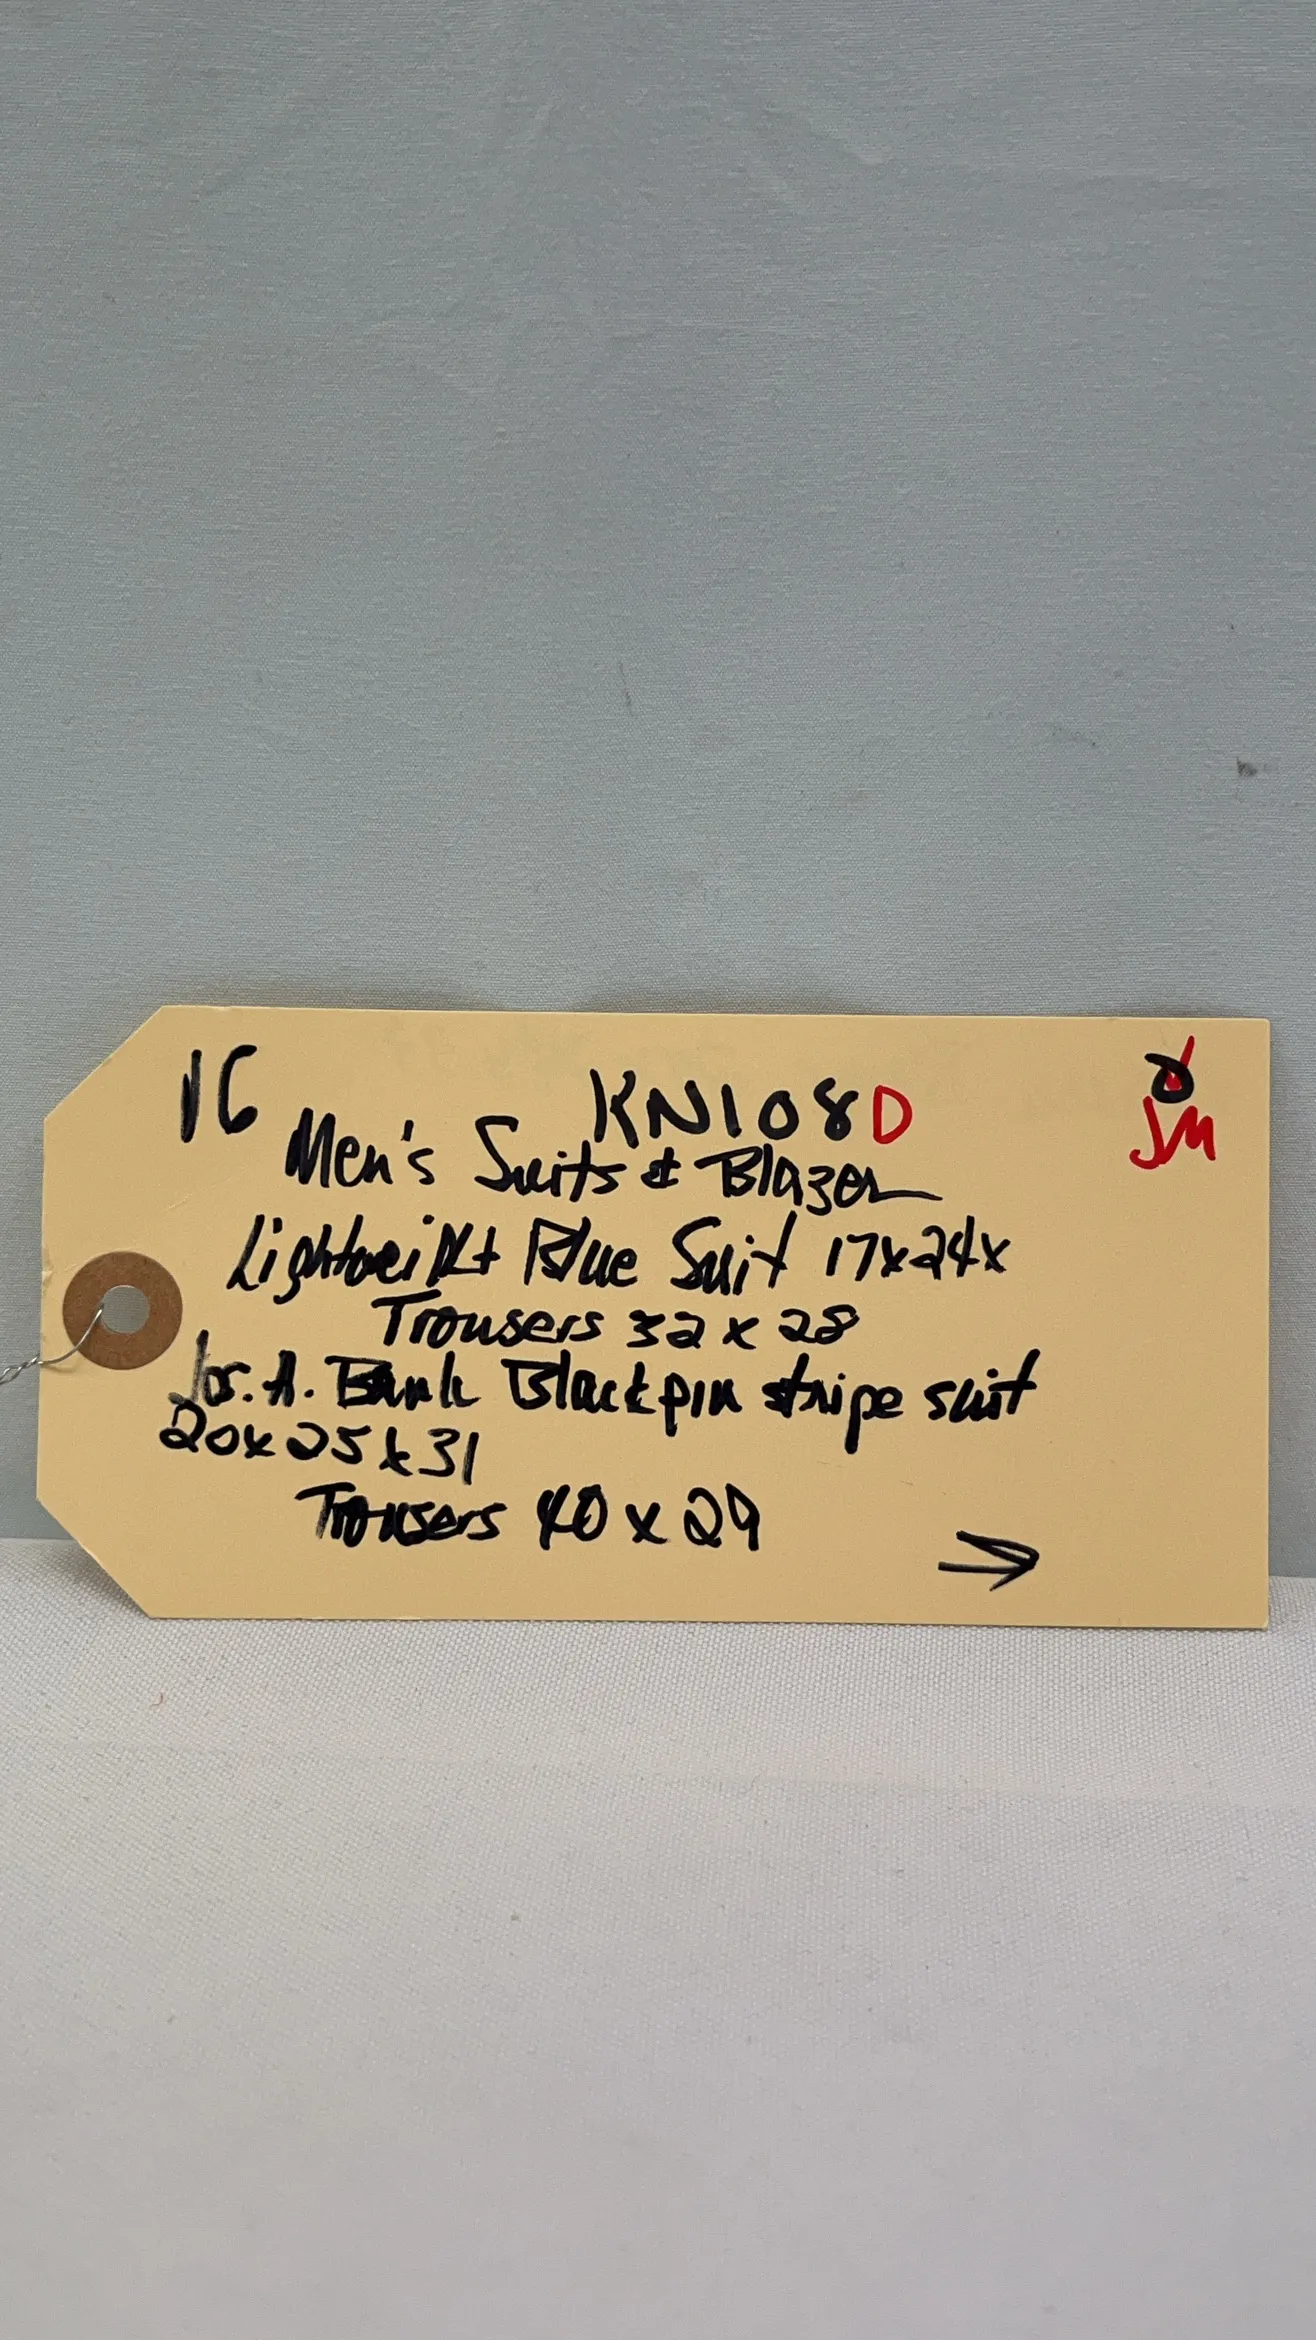 16
KN108D
JM
Men's Suits & Blazer
Blue Suit 17x24x
Trousers 32 x 28
Jos. A. Bank Black pin stripe suit
20x25x31
Trousers 40 x 29
→